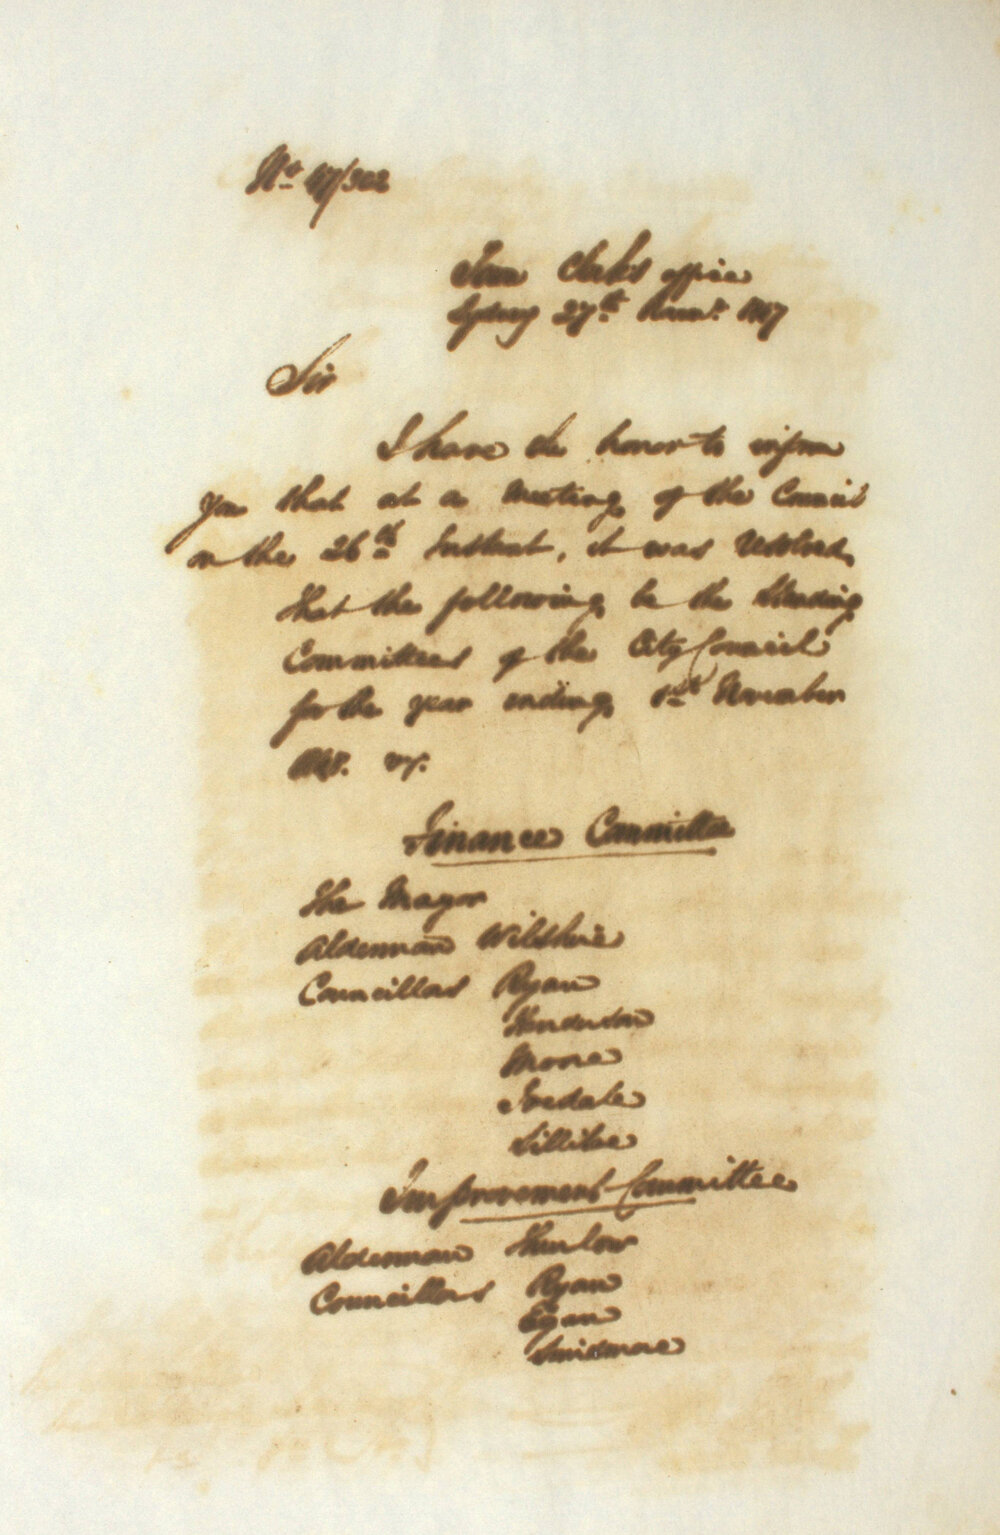 No 47/302
Town Clerk's office
Sydney 27th Novr. 1847
Sir
I have the honor to inform
you that at a Meeting of the Council
on the 26th Instant, it was Resolved,
that the following be the Standing
Committees of the City Council
for the year ending November
1848. vz.
Finance Committee
The Mayor
Alderman Wilshire
Councillors Ryan
Henderson
Moore
Iredale
Sillitoe
Improvement Committee
Alderman Thurlow
Councillors Ryan
Egan
Smidmore